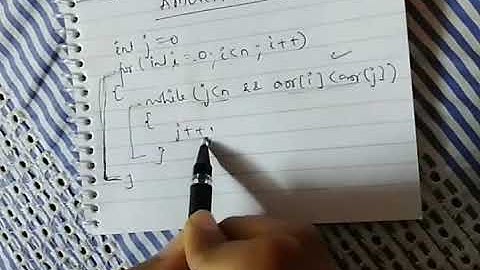 int j=0
for (int i=0; i<n; i++)
{
while (j<n && arr[i]<arr[j])
{
j++;
}
}